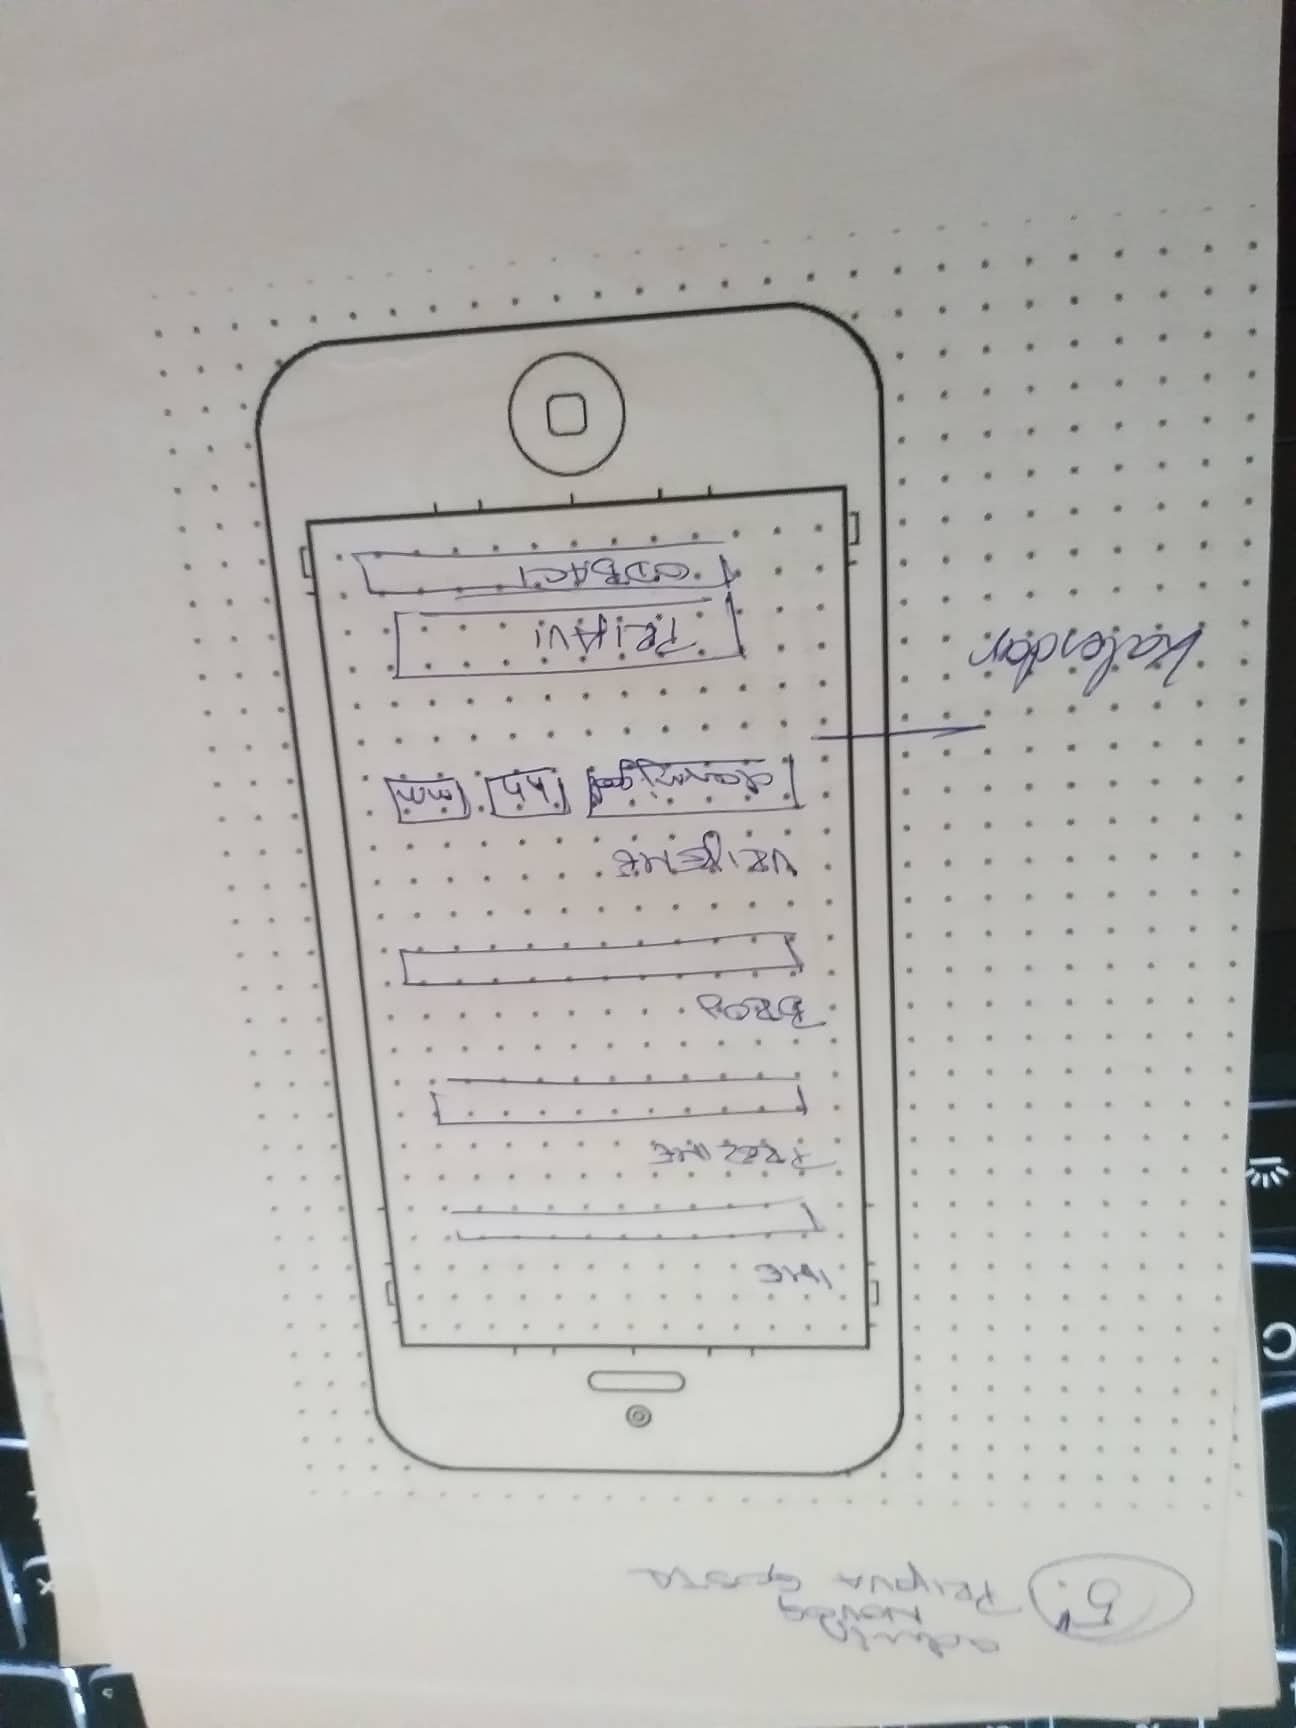 NOVOG
5. PRIJAVA GOSTA
IME
PREZIME
BROJ
VRIJEME
dan/mj/god hh mm
Kalendar
PRIJAVI
ODBACI